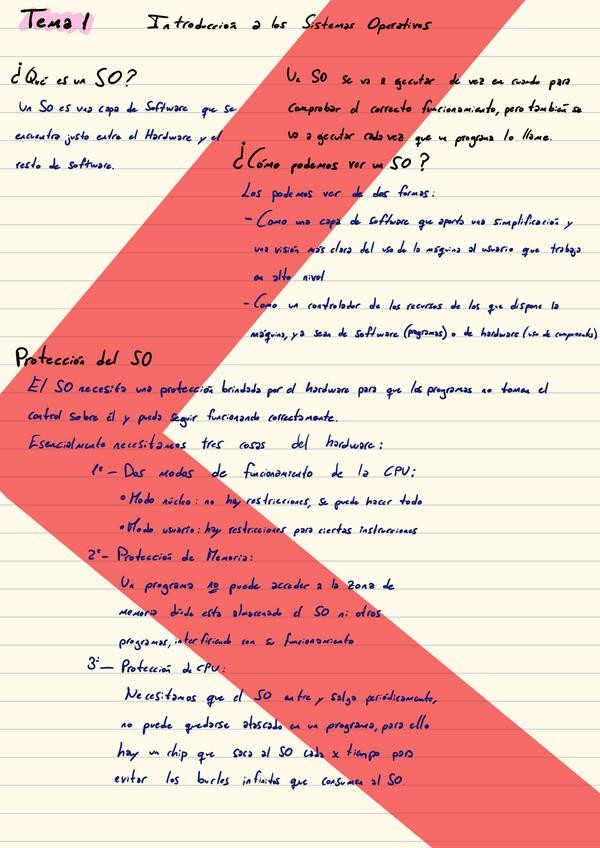 Tema 1 Introducción a los Sistemas Operativos
¿Qué es un SO?
Un SO es una capa de Software que se
encuentra justo entre el Hardware y el
resto de software.
Un SO se va a gecutar de vez en cuando para
comprobar el correcto funcionamiento, pero también se
va a gecutar cada vez que un programa lo llame.
¿Cómo podemos ver un SO?
Los podemos ver de dos formas:
- Como una capa de software que aporta una simplificación y
una visión más clara del uso de la máquina al usuario que trabaja
en alto nivel
- Como un controlador de los recursos de los que dispone la
máquina, ya sean de software (programas) o de hardware (uso de componentes)
Protección del SO
El SO necesita una protección brindada por el hardware para que los programas no tomen el
control sobre él y pueda seguir funcionando correctamente.
Esencialmente necesitamos tres cosas del hardware:
1º - Dos modos de funcionamiento de la CPU:
• Modo núcleo: no hay restricciones, se puede hacer todo
• Modo usuario: hay restricciones para ciertas instrucciones
2º - Protección de Memoria:
Un programa no puede acceder a la zona de
memoria donde esta almacenado el SO ni otros
programas, interfiriendo con su funcionamiento
3º - Protección de CPU:
Necesitamos que el SO entre y salga periódicamente,
no puede quedarse atascado en un programa, para ello
hay un chip que saca al SO cada x tiempo para
evitar los bucles infinitos que consuman al SO.